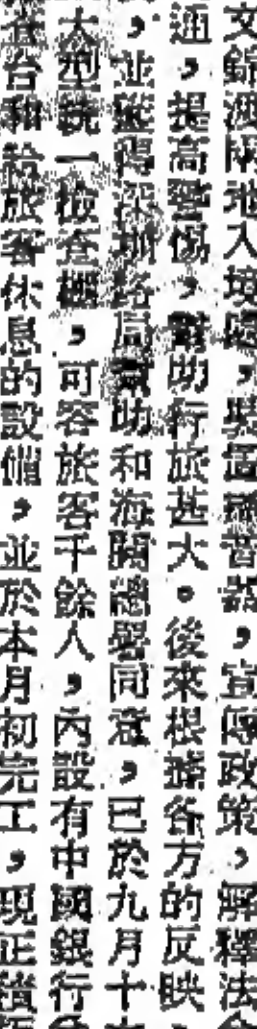 文錦渡兩地入境處，裝置播音器，宣傳政策，解釋法
通，提高警惕，幫助行旅甚大。後來根據各方的反映
，並獲得深圳路局幫助和海關總署同意，已於九月十
大型統一檢查棚，可容旅客千餘人，內設有中國銀行
台和給旅客休息的設備，並於本月初完工，現正積